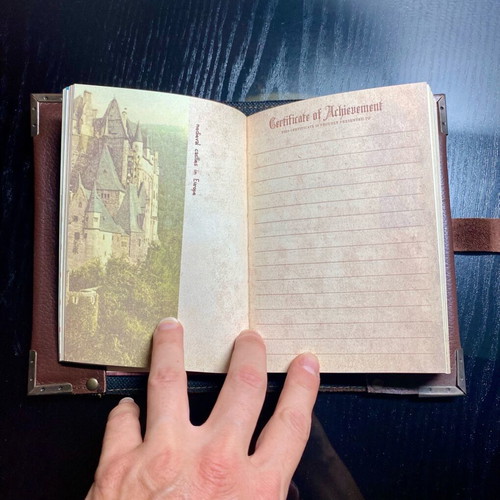 medieval castles in Europe
Certificate of Achievement
THIS CERTIFICATE IS PROUDLY PRESENTED TO